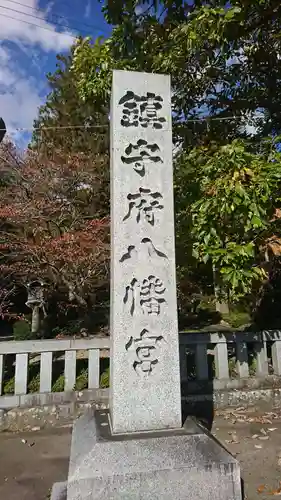 鎮守府八幡宮